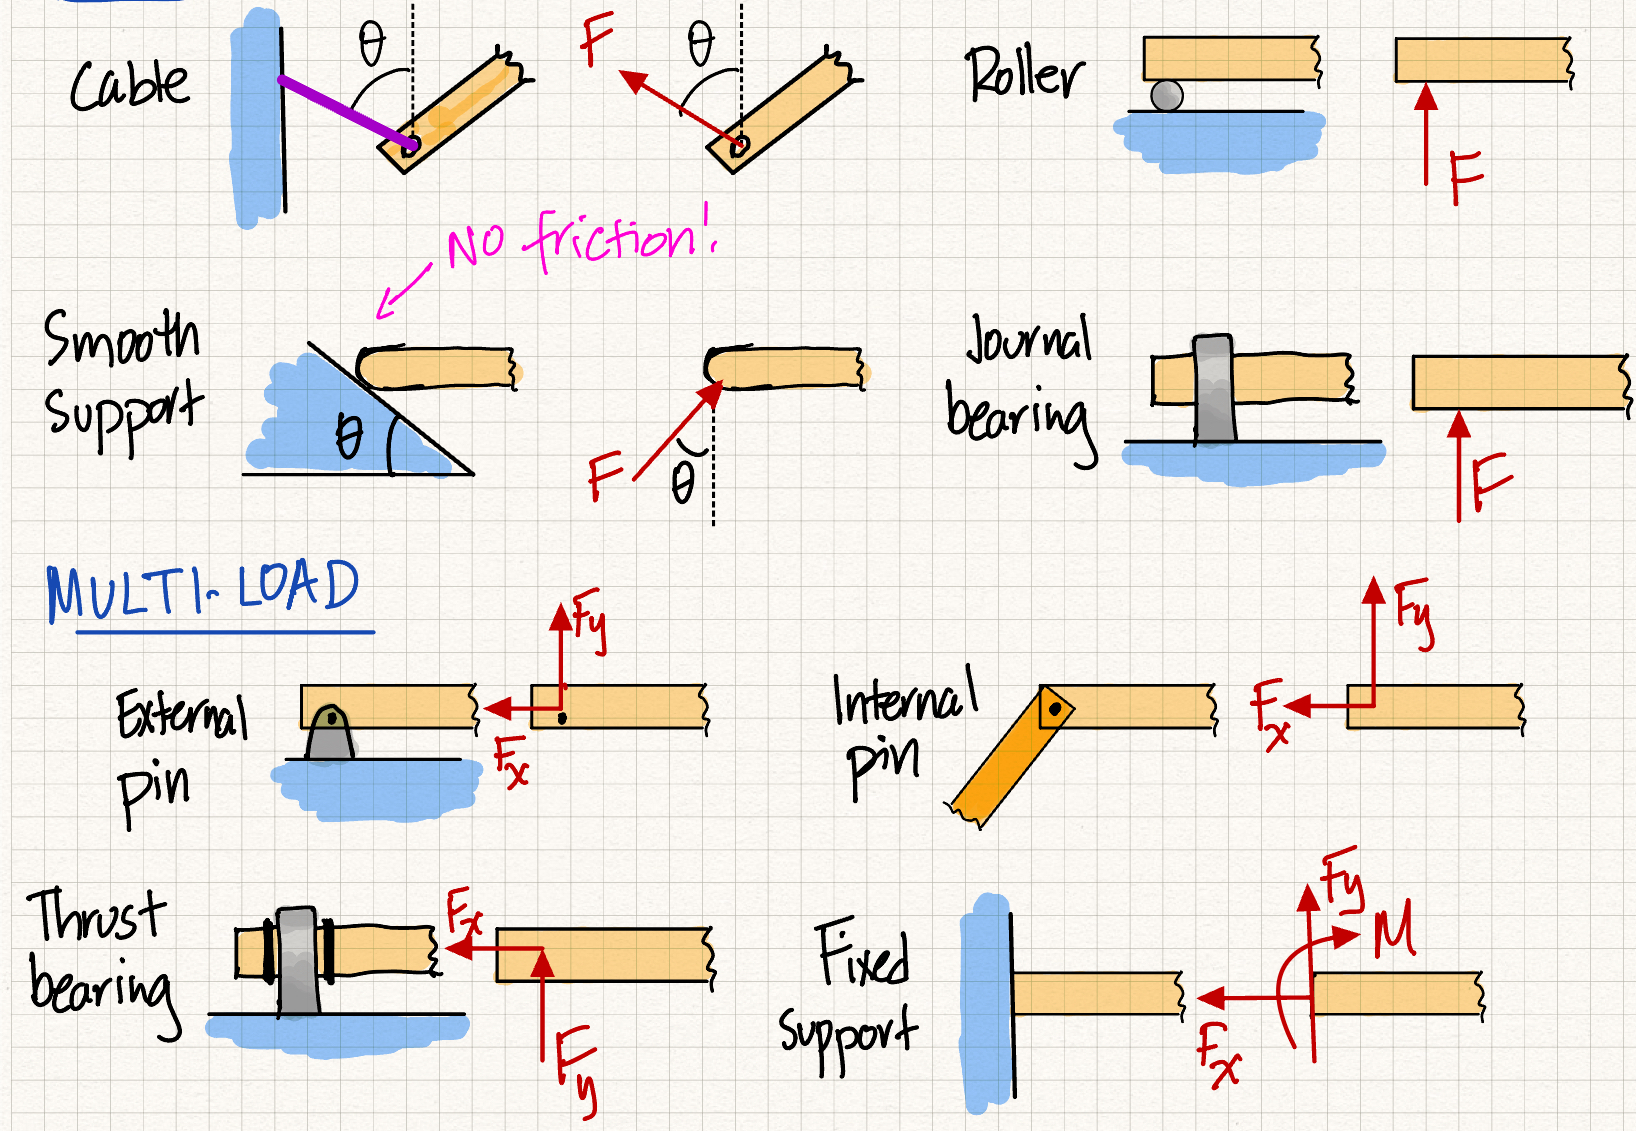 Cable
θ
F
θ
Roller
F
NO friction!
Smooth
support
θ
F
θ
Journal
bearing
F
MULTI-LOAD
External
pin
Fy
Fx
Internal
pin
Fy
Fx
Thrust
bearing
Fx
Fy
Fixed
support
Fy
M
Fx